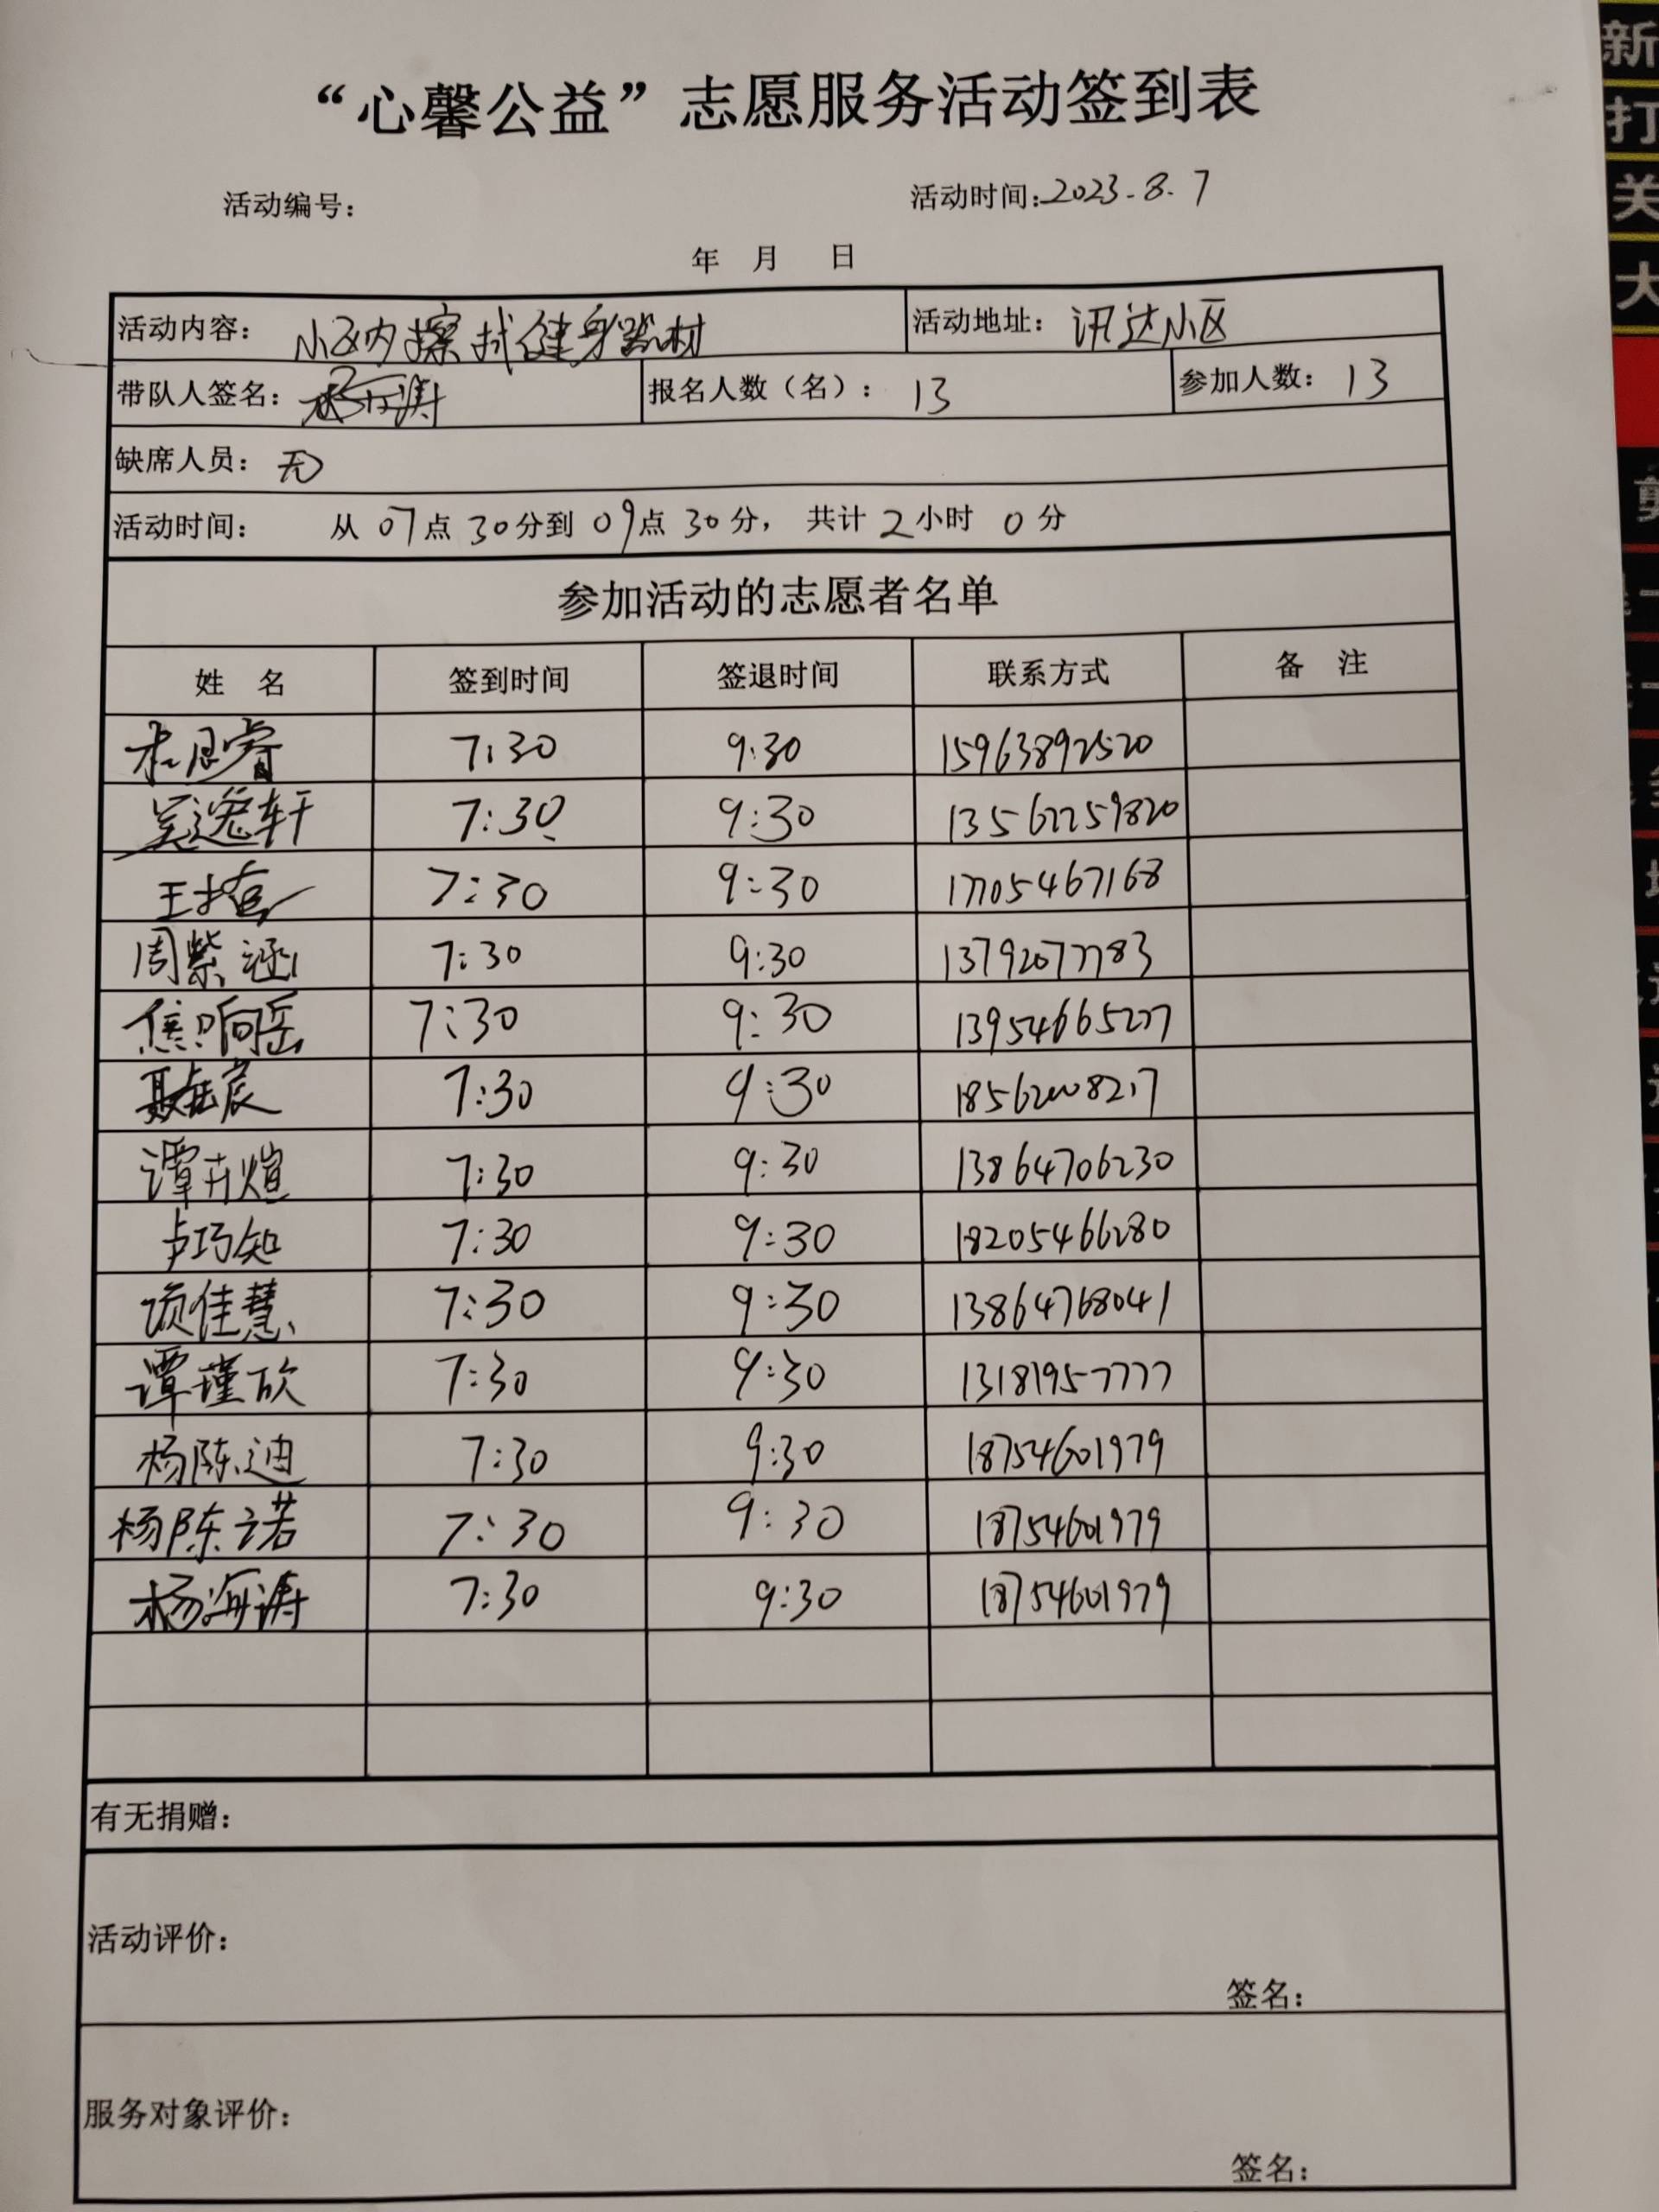 “心馨公益”志愿服务活动签到表
活动编号： 活动时间：2023.8.7
年 月 日
活动内容： 小区内擦拭健身器材 活动地址： 讯达小区
带队人签名： 杨海涛 报名人数（名）： 13 参加人数： 13
缺席人员： 无
活动时间： 从 07点 30分到 09点 30分， 共计 2小时 0分
参加活动的志愿者名单
姓 名 签到时间 签退时间 联系方式 备 注
7:30 9:30 15963892520
吴逸轩 7:30 9:30 13562259820
7:30 9:30 17705467168
周紫涵 7:30 9:30 13792077783
焦响岳 7:30 9:30
7:30 9:30
谭卉煊 7:30 9:30 13864706230
卢巧知 7:30 9:30 18205466280
项佳慧 7:30 9:30 13864768041
谭瑾欣 7:30 9:30 13181957777
杨陈迪 7:30 9:30 18754601979
杨陈诺 7:30 9:30 18754601979
杨海涛 7:30 9:30 18754601979
有无捐赠：
活动评价：
签名：
服务对象评价：
签名：
新
打
关
大